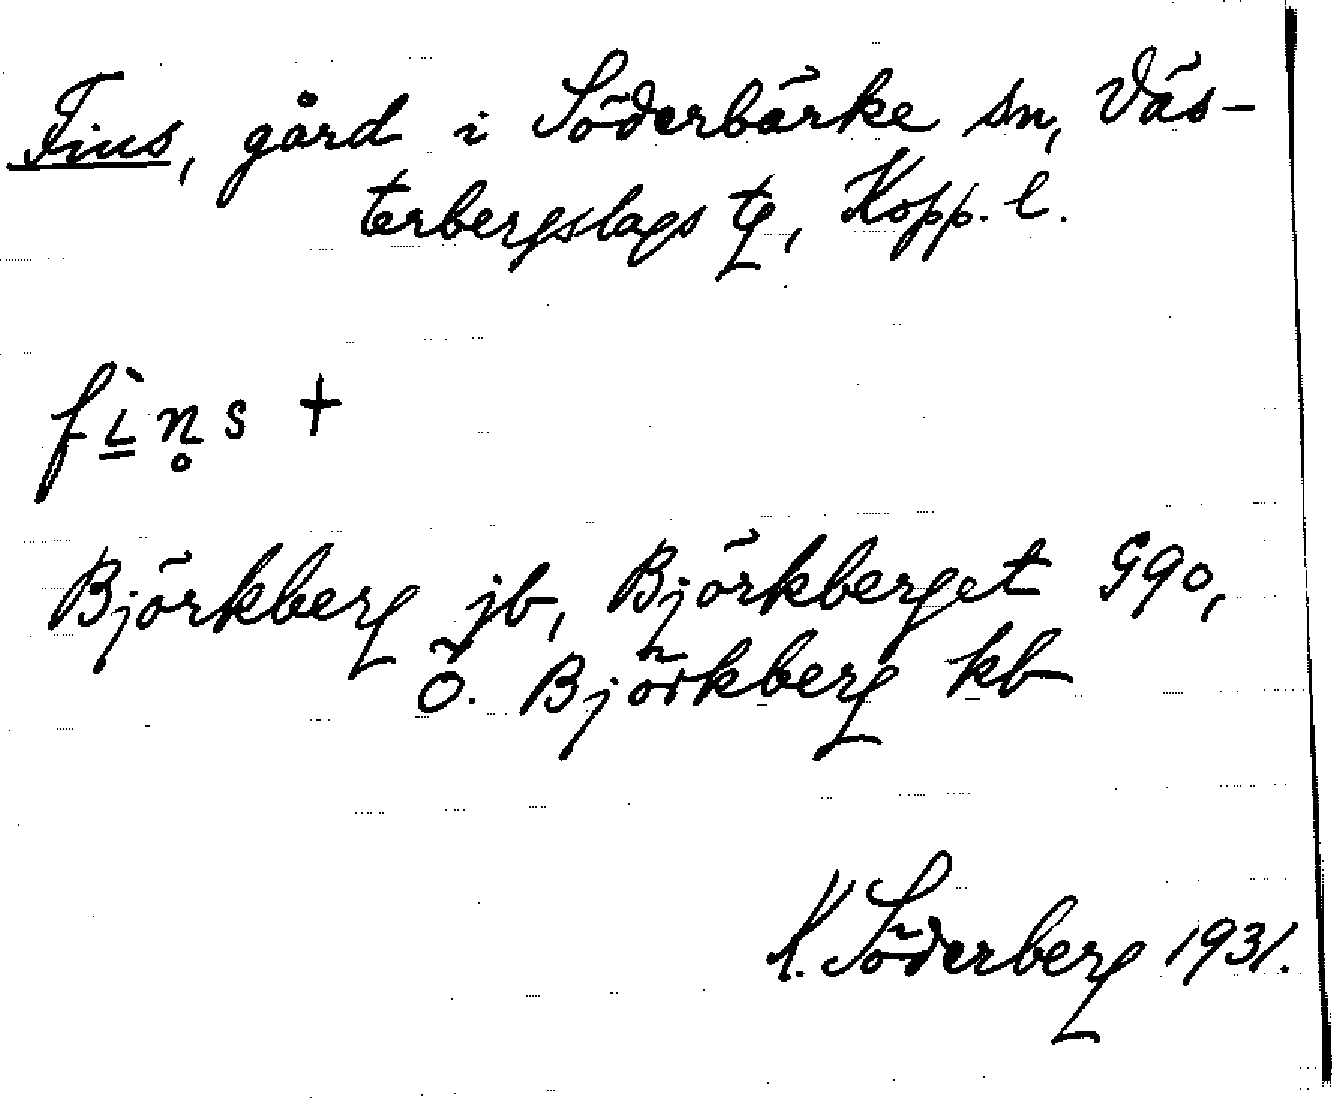 Fins, gård i Söderbärke sn, Väs-
terbergslags tg, Kopp. l.
fì̳n̥s +
Björkberg jb, Björkberget G90,
Ö. Björkberg kb
K. Söderberg 1931.